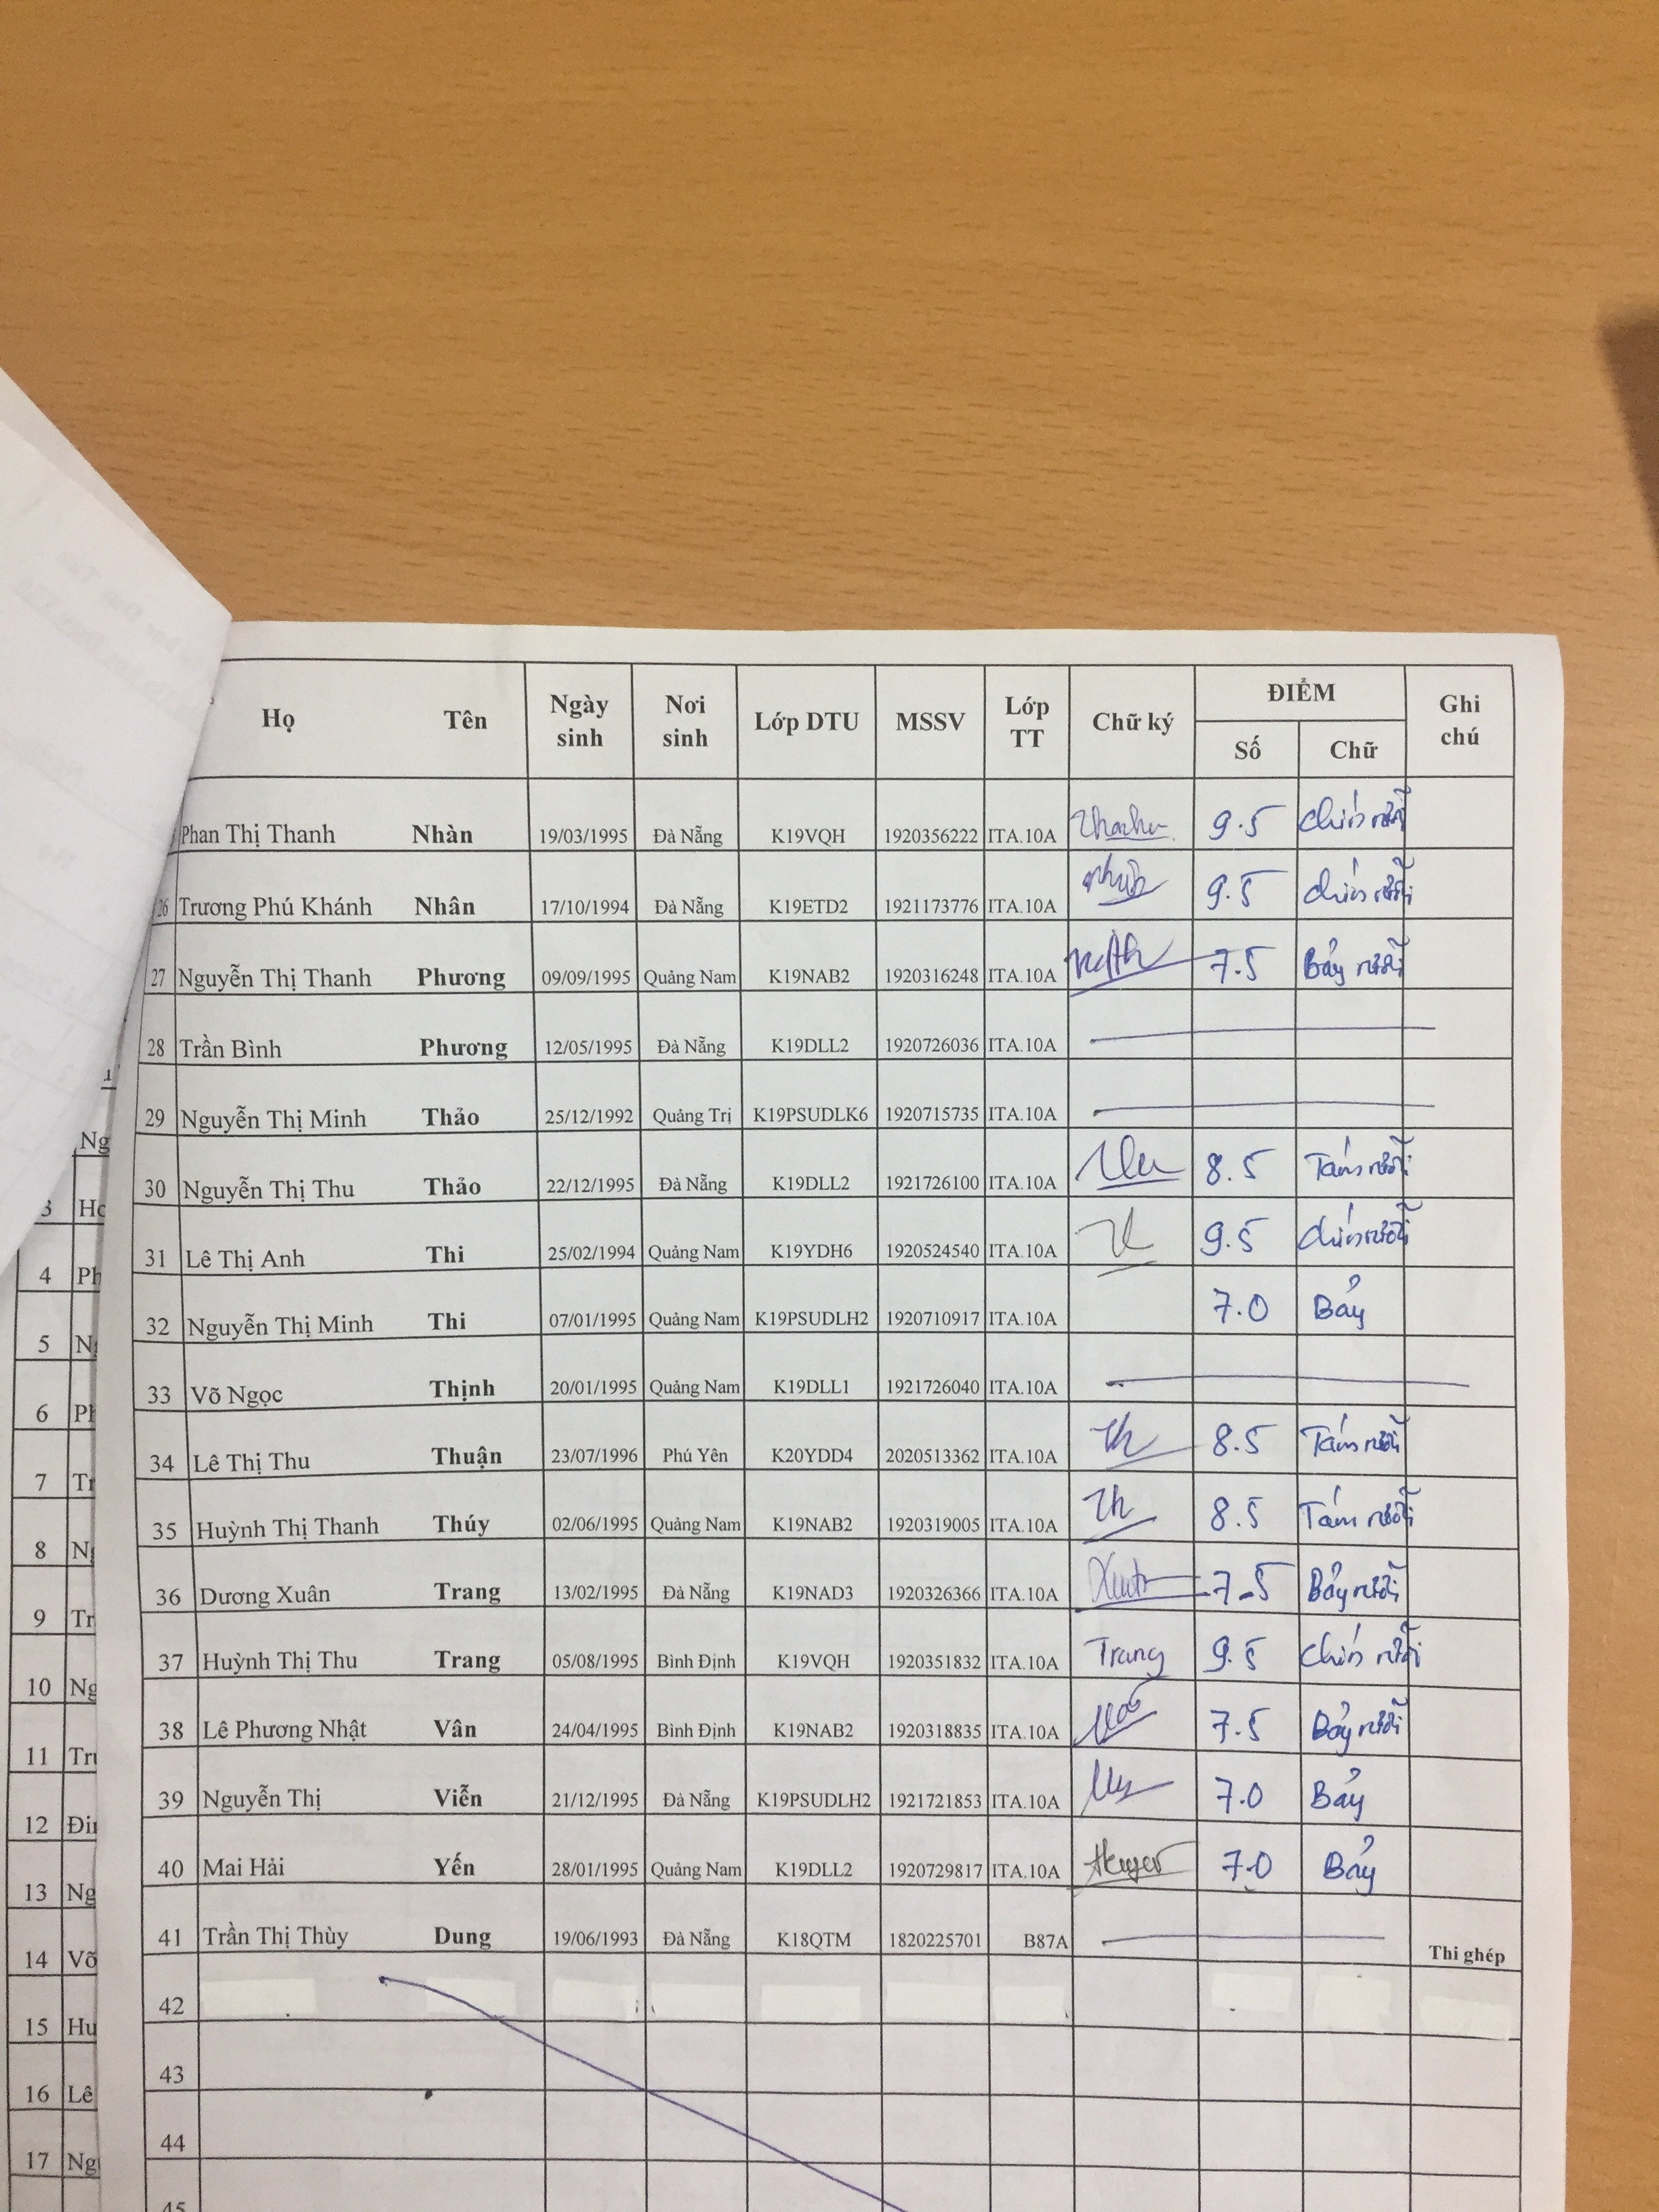 Họ Tên Ngày sinh Nơi sinh Lớp DTU MSSV Lớp TT Chữ ký ĐIỂM Số Chữ Ghi chú
Phan Thị Thanh Nhàn 19/03/1995 Đà Nẵng K19VQH 1920356222 ITA.10A 9.5 Chín rưỡi
26 Trương Phú Khánh Nhân 17/10/1994 Đà Nẵng K19ETD2 1921173776 ITA.10A 9.5 Chín rưỡi
27 Nguyễn Thị Thanh Phương 09/09/1995 Quảng Nam K19NAB2 1920316248 ITA.10A 7.5 Bảy rưỡi
28 Trần Bình Phương 12/05/1995 Đà Nẵng K19DLL2 1920726036 ITA.10A
29 Nguyễn Thị Minh Thảo 25/12/1992 Quảng Trị K19PSUDLK6 1920715735 ITA.10A
30 Nguyễn Thị Thu Thảo 22/12/1995 Đà Nẵng K19DLL2 1921726100 ITA.10A 8.5 Tám rưỡi
31 Lê Thị Anh Thi 25/02/1994 Quảng Nam K19YDH6 1920524540 ITA.10A 9.5 Chín rưỡi
32 Nguyễn Thị Minh Thi 07/01/1995 Quảng Nam K19PSUDLH2 1920710917 ITA.10A 7.0 Bảy
33 Võ Ngọc Thịnh 20/01/1995 Quảng Nam K19DLL1 1921726040 ITA.10A
34 Lê Thị Thu Thuận 23/07/1996 Phú Yên K20YDD4 2020513362 ITA.10A Th 8.5 Tám rưỡi
35 Huỳnh Thị Thanh Thúy 02/06/1995 Quảng Nam K19NAB2 1920319005 ITA.10A Th 8.5 Tám rưỡi
36 Dương Xuân Trang 13/02/1995 Đà Nẵng K19NAD3 1920326366 ITA.10A 7.5 Bảy rưỡi
37 Huỳnh Thị Thu Trang 05/08/1995 Bình Định K19VQH 1920351832 ITA.10A Trang 9.5 Chín rưỡi
38 Lê Phương Nhật Vân 24/04/1995 Bình Định K19NAB2 1920318835 ITA.10A 7.5 Bảy rưỡi
39 Nguyễn Thị Viễn 21/12/1995 Đà Nẵng K19PSUDLH2 1921721853 ITA.10A 7.0 Bảy
40 Mai Hải Yến 28/01/1995 Quảng Nam K19DLL2 1920729817 ITA.10A 7.0 Bảy
41 Trần Thị Thùy Dung 19/06/1993 Đà Nẵng K18QTM 1820225701 B87A Thi ghép
42
43
44
45
Ng
3 Hc
4 Ph
5 Ng
6 Ph
7 Tr
8 Ng
9 Tr
10 Ng
11 Trư
12 Đin
13 Ng
14 Võ
15 Hu
16 Lê
17 Ng